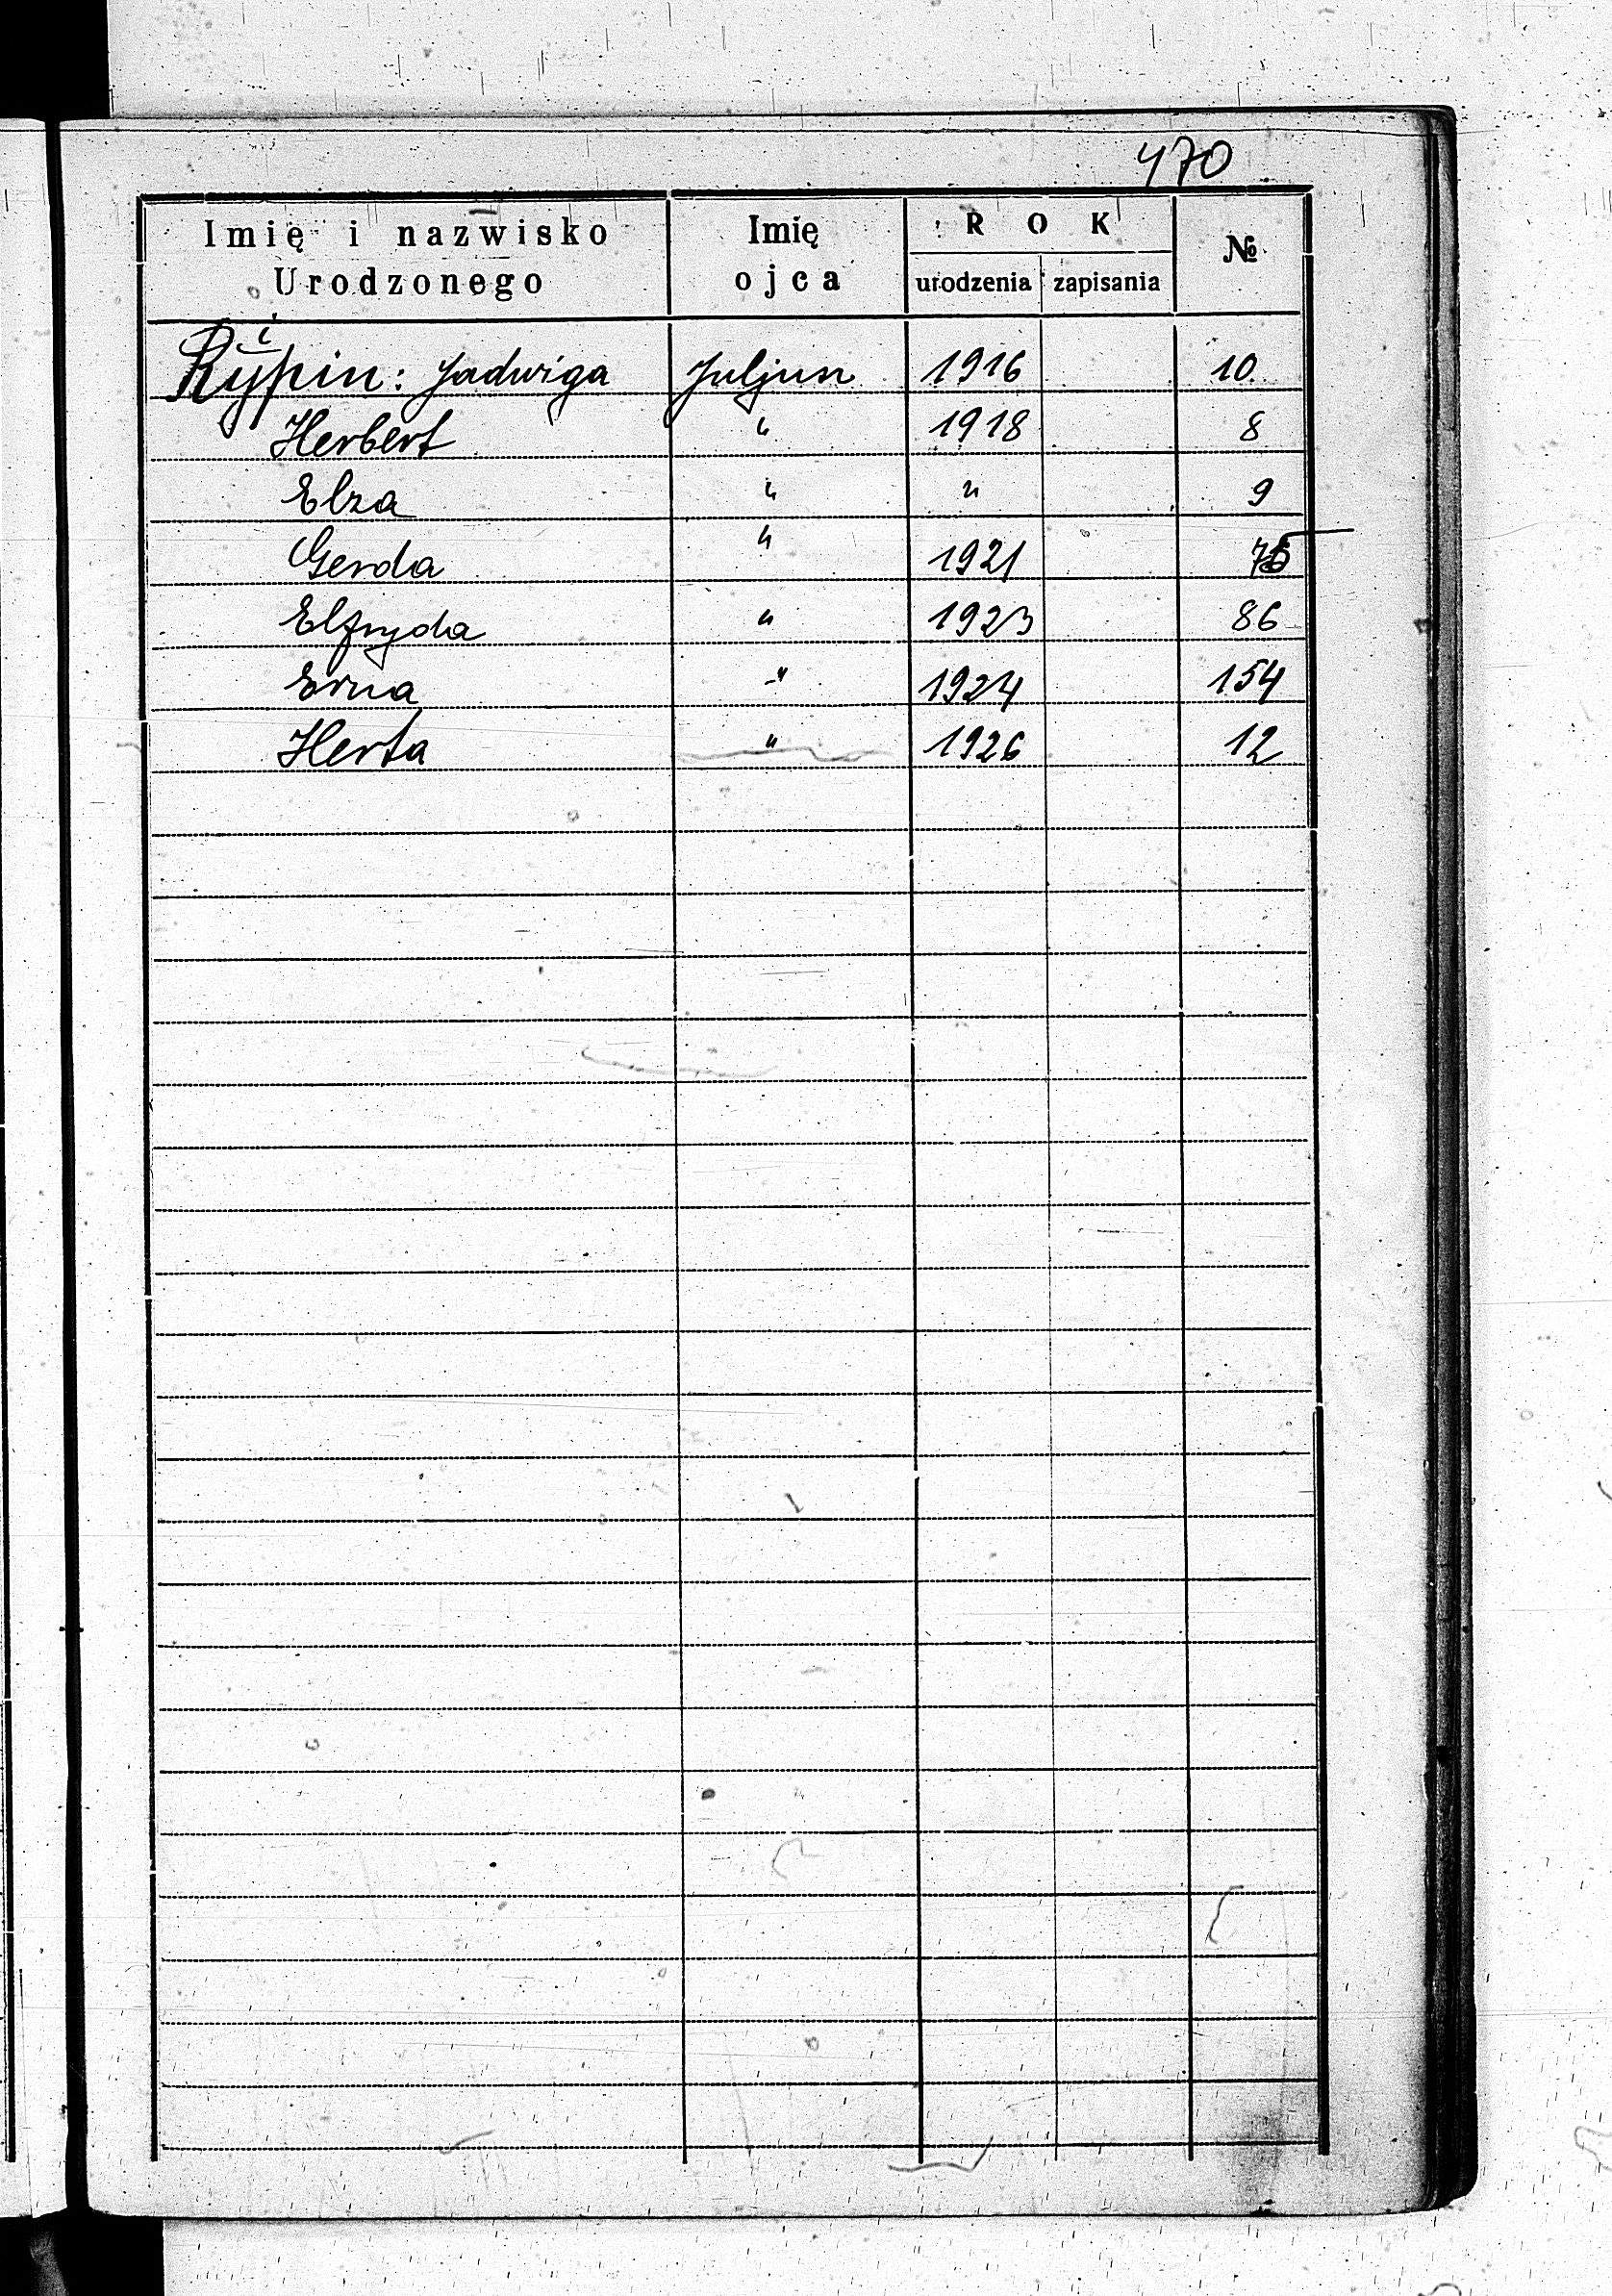 470
Imię i nazwisko Urodzonego Imię ojca ROK urodzenia zapisania №
Rypin: Jadwiga Juljusz 1916 10.
Herbert " 1918 8
Elza " " 9
Gerda " 1921
Elfryda " 1923 86
Erna -" 1924 154
Herta " 1926 12